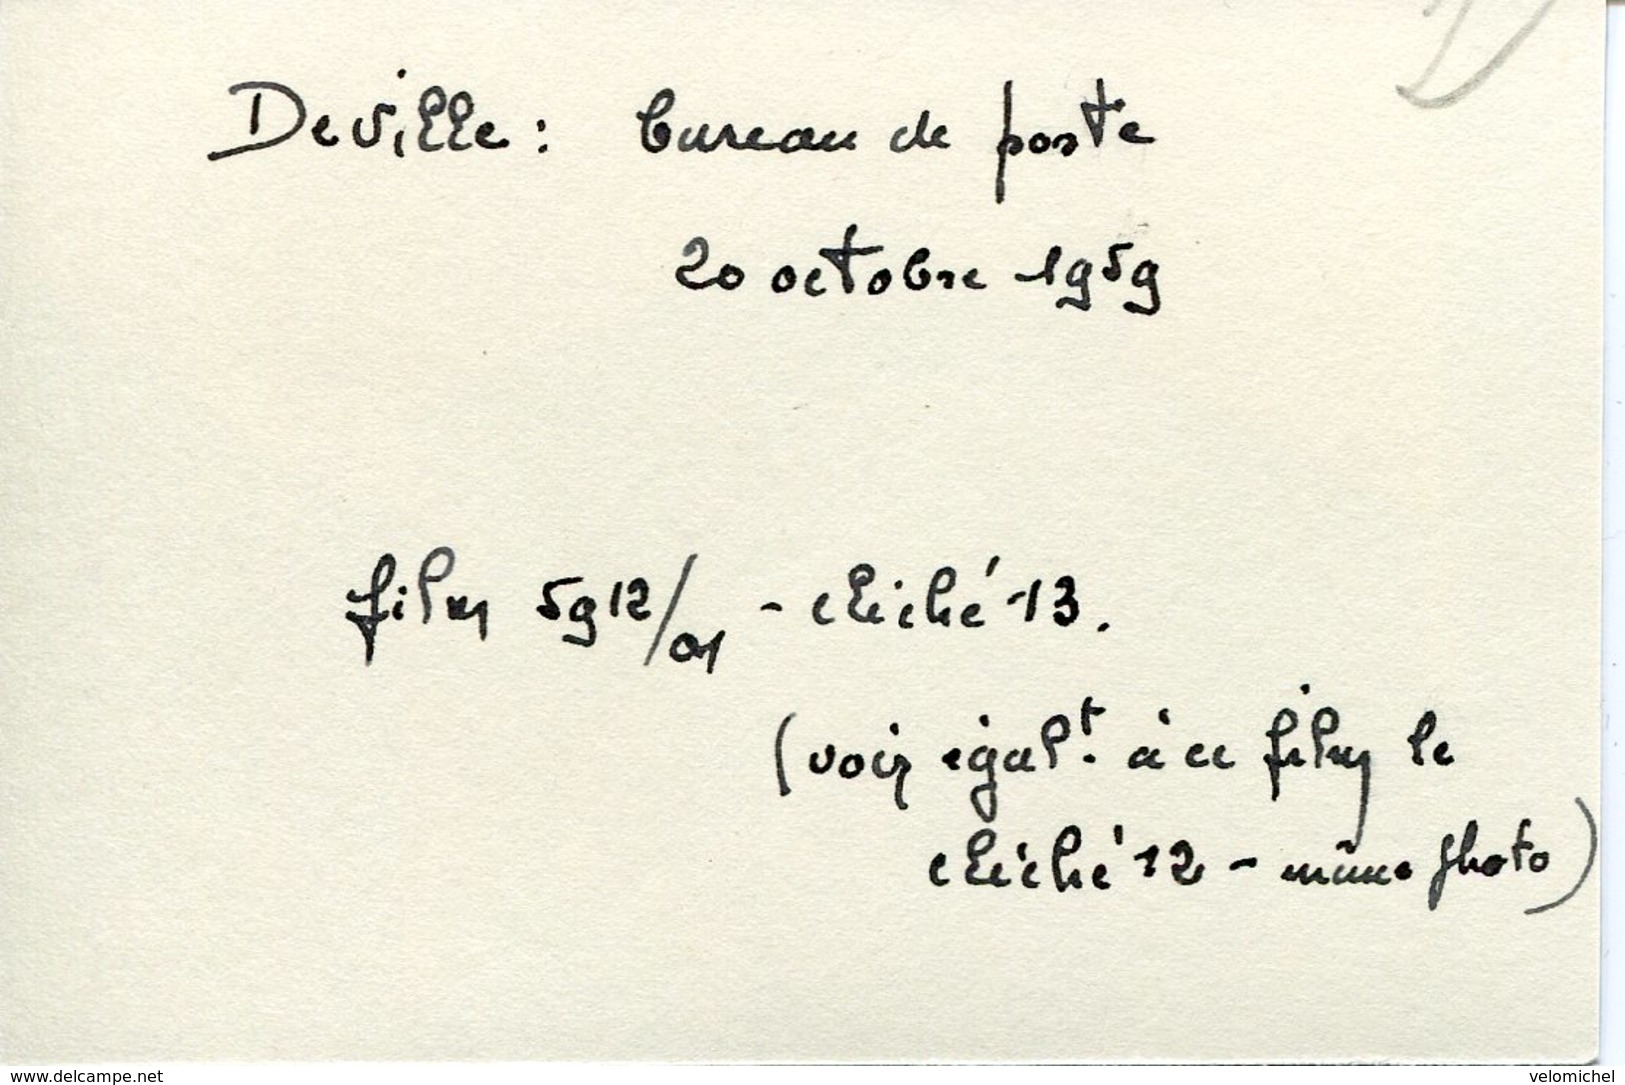 Deville : bureau de poste
20 octobre 1959
film 5912/01 - cliché 13.
(voir égalt. à ce film le
cliché 12 - même photo)
www.delcampe.net
velomichel